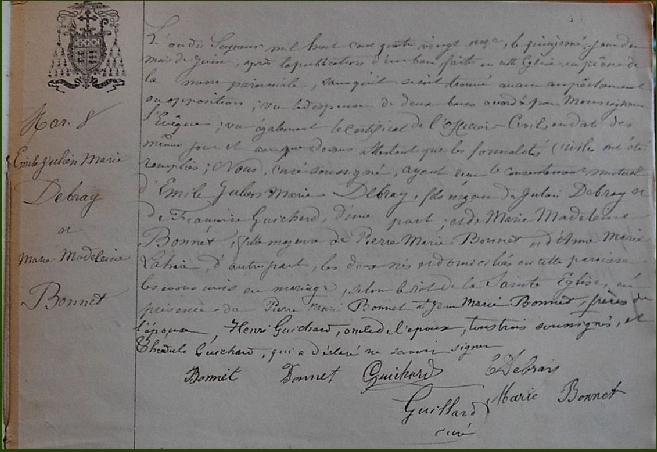 Mar. 8
Emile Julien Marie
Debray
et
Marie Madeleine
Bonnet
L'an du Seigneur mil huit cent quatre vingt onze, le
mois de Juin, après la publication d'un ban faite en cette Eglise au prône de
la messe paroissiale, sans qu'il se soit trouvé aucun empêchement
ou opposition; vu la dispense de deux bans accordée par Monseigneur
l'Evêque; vu également le certificat de l'Officier Civil, en date des
même jour et an que dessus attestant que les formalités civiles ont été
remplies; Nous, curé soussigné, ayant reçu le consentement mutuel
d'Emile Julien Marie Debray, fils majeur de Julien Debray et
de Françoise Guichard, d'une part; et de Marie Madeleine
Bonnet, fille majeure de Pierre Marie Bonnet et d'Anne Marie
d'autre part, les deux nés et domiciliés en cette paroisse
les avons unis en mariage, selon le Rit de la Sainte Eglise, en
présence de Pierre Marie Bonnet et Jean Marie Bonnet, frères de
l'épouse, Henri Guichard, oncle de l'époux, tous trois soussignés, et
Guichard, qui a déclaré ne savoir signer
Bonnet Bonnet Guichard E Debrais
Guillard Marie Bonnet
curé